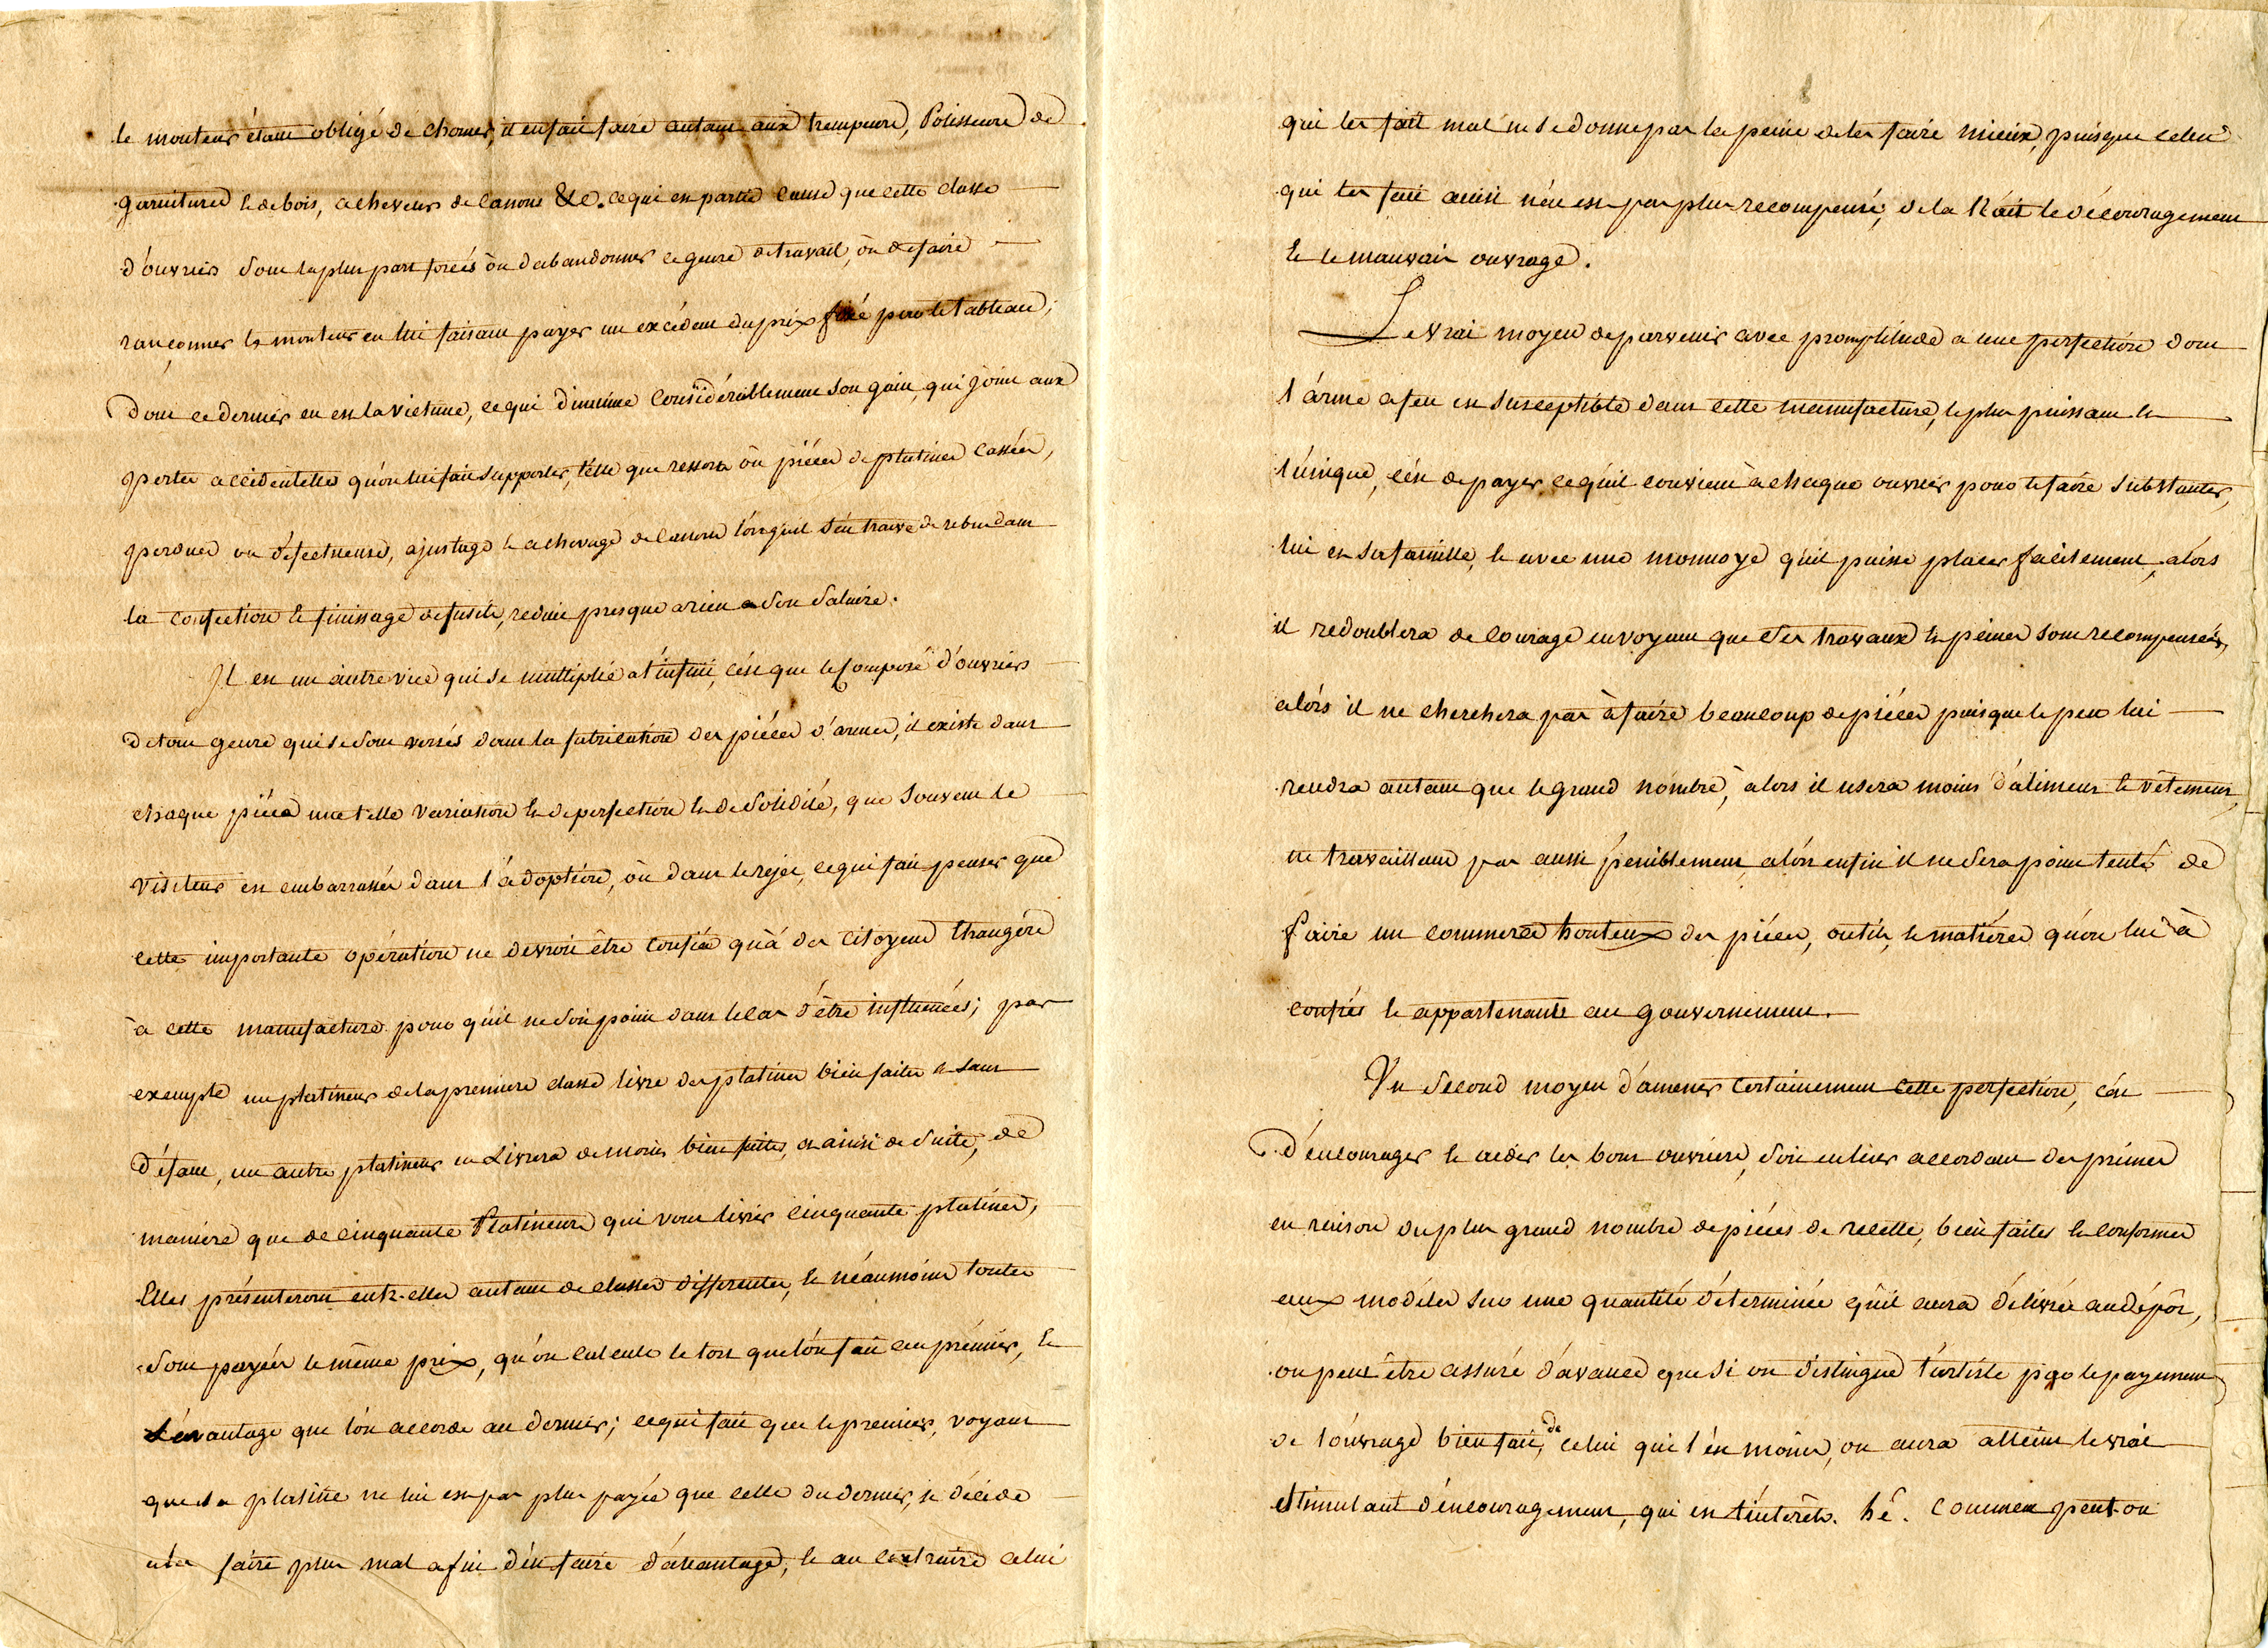 le monteur étant obligé de chomer, il en fait faire autant aux trempeurs, Polisseurs de
garnitures & de bois, acheveurs de canons &c. ce qui en partie cause que cette classe
d'ouvriers sont la plus part forcés ou d'abandonner ce genre de travail, ou de faire
rançonner le monteur en lui faisant payer un excédent du prix fixé par le tableau;
dont ce dernier en est la victime, ce qui diminue considérablement son gain, qui joint aux
pertes accidentelles qu'on lui fait supporter, telle que ressorts ou pièces de platines cassées,
perdues ou défectueuses, ajustage & achevage de canons lorsqu'il s'en trouve de rebut dans
la confection & finissage de fusils, reduit presque a rien a son salaire.
Il est un autre vice qui se multiplie a l'infini, c'est que le composé d'ouvriers
de tout genre qui se sont versés dans la fabrication des pièces d'armes, il existe dans
chaque pièce une telle variation & de perfection & de solidité, que souvent le
visiteur est embarrassé dans l'adoption, ou dans le rejet, ce qui fait penser que
cette importante opération ne devroit être confiée qu'à des citoyens étrangers
à cette manufacture pour qu'il ne soit point dans le cas d'être influencés; par
exemple un platineur de la premiere classe livre des platines bien faites & sans
défaut, un autre platineur en livrera de moins bien faites, & ainsi de suite, de
maniere que de cinquante Platineurs qui vont livrer cinquante platines,
Elles présenteront entr-elles autant de classes differentes, & néanmoins toutes
sont payées le même prix, qu'on calcule le tort que l'on fait au premier, &
L'avantage que l'on accorde au dernier; ce qui fait que le premier, voyant
que sa platine ne lui est pas plus payée que celle du dernier, se décide
a la faire plus mal afin d'en faire d'avantage, & au contraire celui
qui les fait mal ne se donne pas la peine de les faire mieux, puisque celui
qui les fait ainsi n'en est pas plus recompensé, de la Nait le découragement
& le mauvais ouvrage.
Le vrai moyen de parvenir avec promptitude a une perfection dont
l'arme a feu est susceptible dans cette manufacture, le plus puissant &
l'unique, c'est de payer ce qu'il convient à chaque ouvrier pour le faire substanter,
lui et sa famille, & avec une monnoye qu'il puisse placer facilement, alors
il redoublera de courage en voyant que ses travaux & peines sont recompensées,
alors il ne cherchera pas à faire beaucoup de pièces puisque le peu lui
rendra autant que le grand nombre, alors il usera moins d'aliment & vêtement,
ne travaillant pas aussi peniblement, alors enfin il ne sera point tenté de
faire un commerce honteux des pièces, outils, & matières qu'on lui à
confiés & appartenants au gouvernement.
Un second moyen d'amener certainement cette perfection, c'est
d'encourager & aider les bons ouvriers, soit en leur accordant des primes
en raison du plus grand nombre de pièces de recette, bien faites & conformes
aux modèles sur une quantité déterminée qu'il aura délivrée au dépôt,
on peut être assuré d'avance que si on distingue l'artiste par le payement
de l'ouvrage bien fait, de celui qui l'est moins, on aura atteint le vrai
stimulant d'encouragement, qui est l'intérêt. hé. comment peut-on